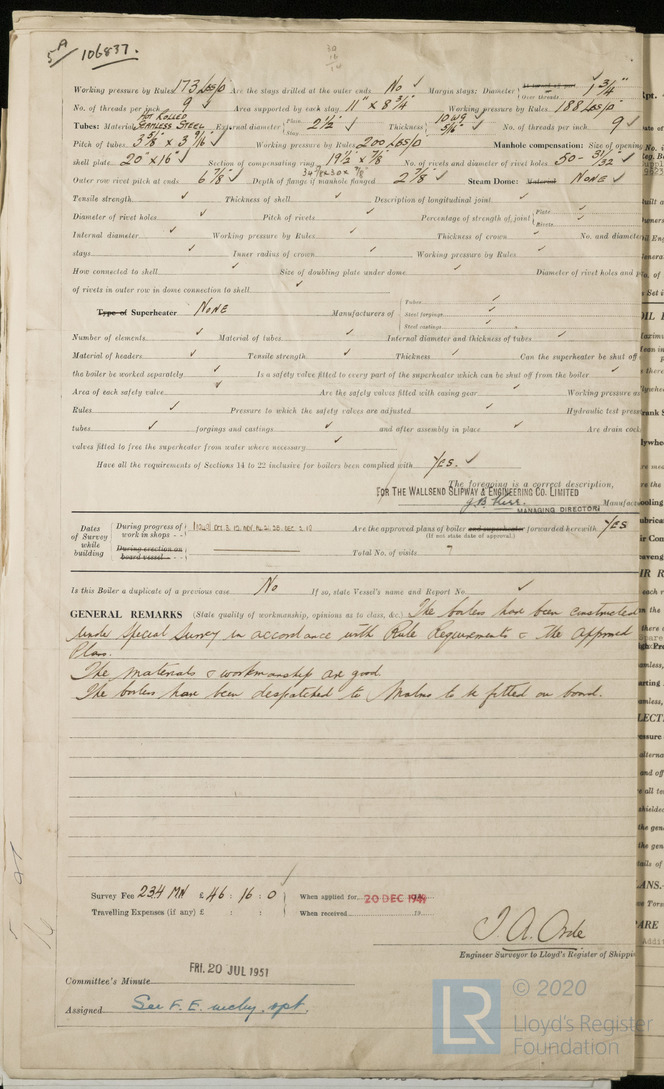 5A 106837.
30
16
14
Working pressure by Rules 173 lbs/□" Are the stays drilled at the outer ends No ✓ Margin stays: Diameter { At turned off part, Over threads 1 3/4"
No. of threads per inch 9 ✓ Area supported by each stay 11" x 8 3/4" Working pressure by Rules 188 lbs/□"
Tubes: Material HOT ROLLED SEAMLESS STEEL External diameter { Plain Stay 2 1/2" ✓ Thickness { 10 WG 5/16" ✓ No. of threads per inch 9 ✓
Pitch of tubes 3 5/8" x 3 9/16" ✓ Working pressure by Rules 200 lbs/□" Manhole compensation: Size of opening
shell plate 20" x 16" ✓ Section of compensating ring 19 1/2" x 7/8" No. of rivets and diameter of rivet holes 50 - 31/32" ✓
34 7/8 x 30 x 7/8"
Outer row rivet pitch at ends 6 7/8" ✓ Depth of flange if manhole flanged 2 7/8" ✓ Steam Dome: Material NONE ✓
Tensile strength ✓ Thickness of shell ✓ Description of longitudinal joint ✓
Diameter of rivet holes ✓ Pitch of rivets ✓ Percentage of strength of joint { Plate ✓ Rivets ✓
Internal diameter ✓ Working pressure by Rules ✓ Thickness of crown ✓ No. and diameter
stays ✓ Inner radius of crown ✓ Working pressure by Rules ✓
How connected to shell ✓ Size of doubling plate under dome ✓ Diameter of rivet holes and p
of rivets in outer row in dome connection to shell ✓
Type of Superheater NONE Manufacturers of { Tubes ✓
Steel forgings ✓
Steel castings ✓
Number of elements ✓ Material of tubes ✓ Internal diameter and thickness of tubes ✓
Material of headers ✓ Tensile strength ✓ Thickness ✓ Can the superheater be shut off
the boiler be worked separately ✓ Is a safety valve fitted to every part of the superheater which can be shut off from the boiler ✓
Area of each safety valve ✓ Are the safety valves fitted with easing gear ✓ Working pressure as
Rules ✓ Pressure to which the safety valves are adjusted ✓ Hydraulic test press
tubes ✓ forgings and castings ✓ and after assembly in place ✓ Are drain cock
valves fitted to free the superheater from water where necessary ✓
Have all the requirements of Sections 14 to 22 inclusive for boilers been complied with Yes. ✓
The foregoing is a correct description,
FOR THE WALLSEND SLIPWAY & ENGINEERING CO. LIMITED
J.B. Kerr. Manufac
MANAGING DIRECTOR
Dates of Survey while building { During progress of work in shops - - { (1949) OCT 3. 12. NOV. 14. 21. 28. DEC. 2. 19 Are the approved plans of boiler and superheater forwarded herewith Yes
(If not state date of approval.)
During erection on board vessel - - - Total No. of visits 7
Is this Boiler a duplicate of a previous case No If so, state Vessel's name and Report No. ✓
GENERAL REMARKS (State quality of workmanship, opinions as to class, &c.) The boilers have been constructed
under Special Survey in accordance with Rule Requirements & the approved
Plans.
The materials & workmanship are good.
The boilers have been despatched to Malmo to be fitted on board.
Survey Fee 234 MN £46 : 16 : 0 When applied for, 20 DEC 1949
Travelling Expenses (if any) £ : : When received 19
J. A. Orde
Engineer Surveyor to Lloyd's Register of Shippin
Committee's Minute FRI. 20 JUL 1951
Assigned See F. E. mchy. rpt.
LR
© 2020
Lloyd's Register
Foundation